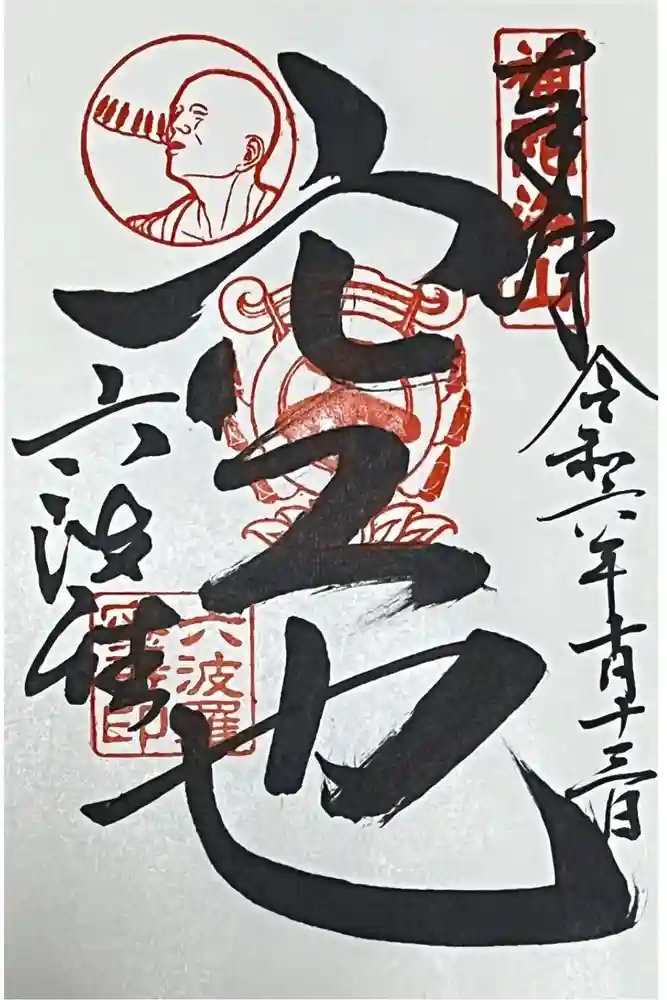 奉拝
補陀洛山
令和六年十月十三日
空也
六波羅
六波羅蜜寺印